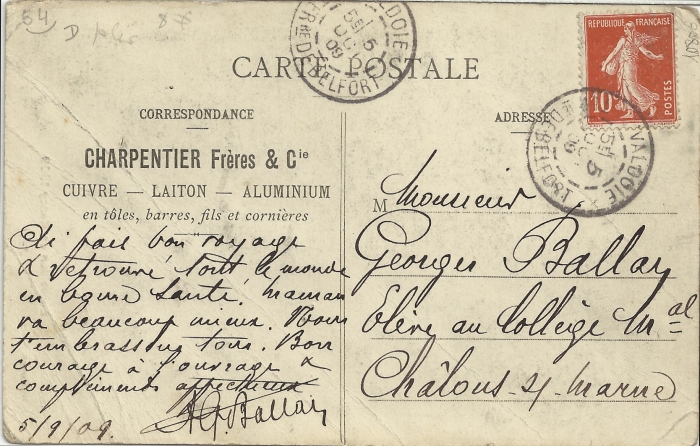 54
CARTE POSTALE
RÉPUBLIQUE FRANÇAISE
10c
POSTES
VALDOIE
BELFORT
CORRESPONDANCE
ADRESSE
CHARPENTIER Frères & Cie
CUIVRE — LAITON — ALUMINIUM
en tôles, barres, fils et cornières
Ai fait bon voyage
& retrouvé tout le monde
en bonne santé. Maman
va beaucoup mieux. Nous
t'embrassons tous. Bon
courage à l'ouvrage &
compliments affectueux
Ballay
5/9/09.
M Monsieur
Georges Ballay
Elève au Collège Mal
Châlons s/ Marne